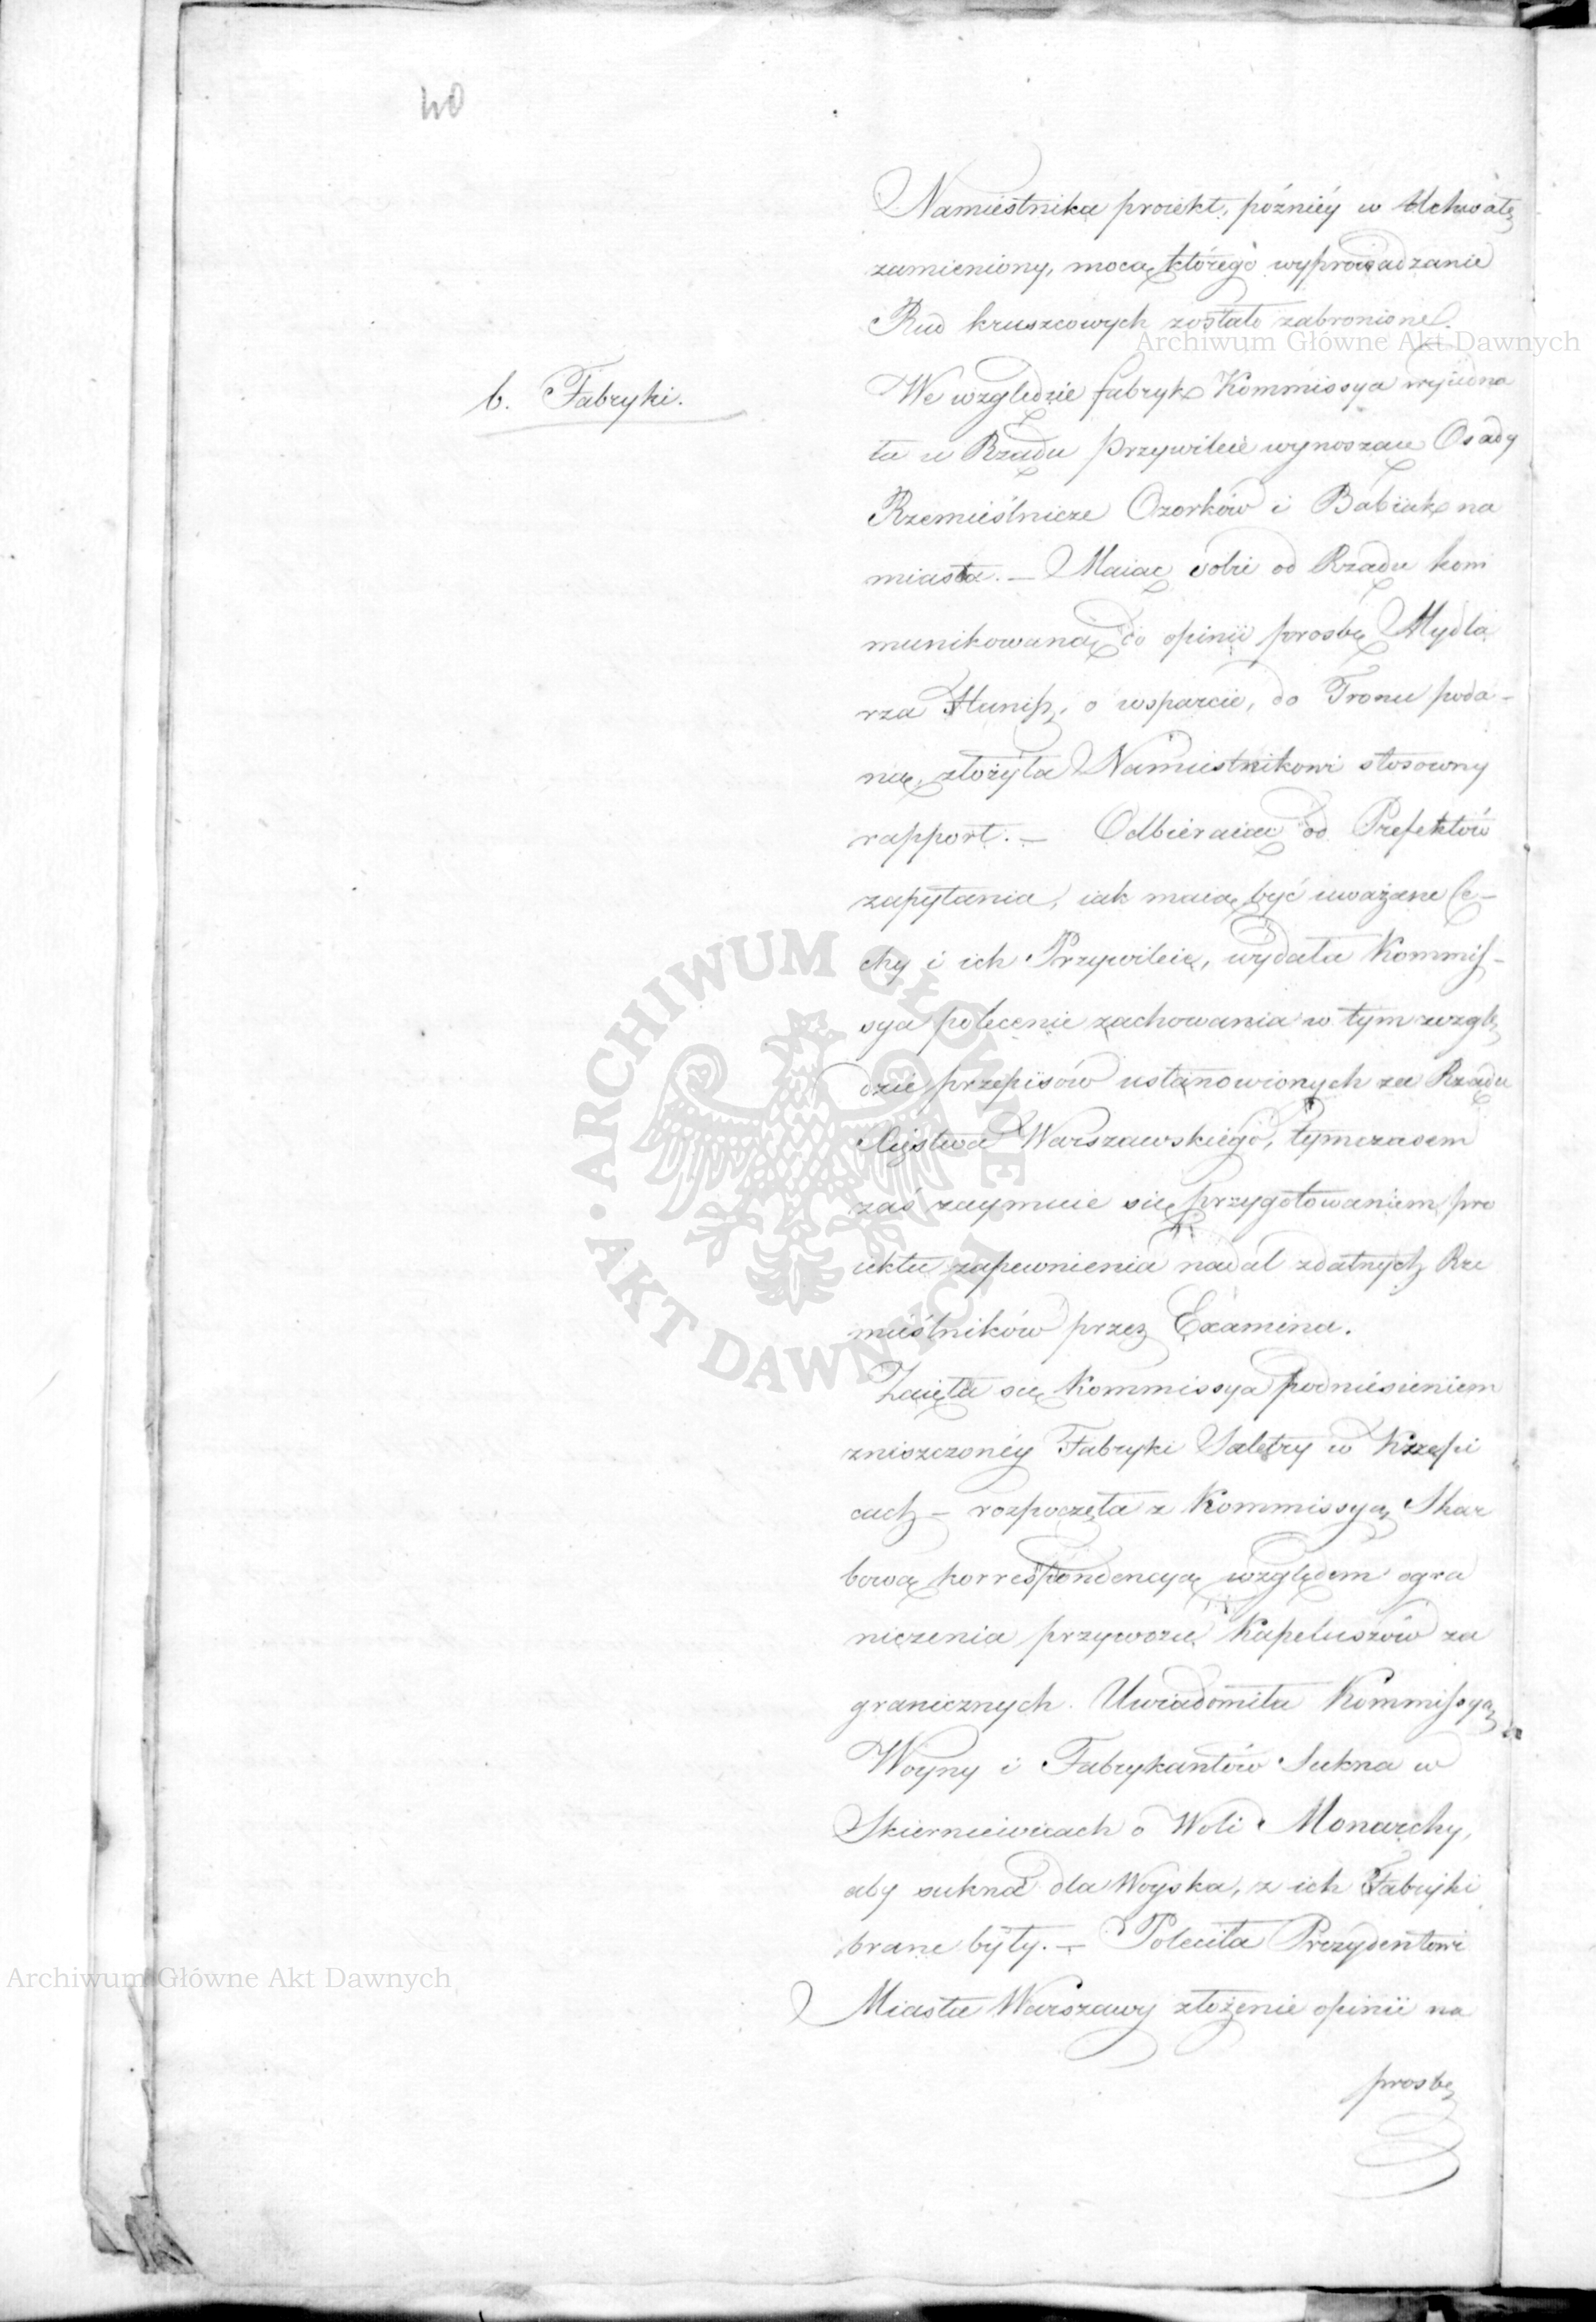 40
Namiestnika proiekt, późniéy w Uchwałę
zamieniony, mocą którego wyprowadzanie
Rud kruszcowych zostało zabronione.
b. Fabryki.
We względzie fabryk Kommissya wyiedna
ła u Rządu Przywileie wynoszące Osady
Rzemieślnicze Ozorków i Babiak na
miasta. — Maiąc sobie od Rządu kom
munikowaną do opinii prosbę Mydla
rza o wsparcie, do Tronu poda-
ną, złożyła Namiestnikowi stosowny
rapport. — Odbieraiąc od Prefektów
zapytania, iak maią być uważane Ce-
chy i ich Przywileie, wydała Kommis-
sya polecenie zachowania w tym wzglę
dzie przepisów ustanowionych za Rządu
Xięstwa Warszawskiego, tymczasem
zaś zaymuie się przygotowaniem pro
iektu zapewnienia nadal zdatnych Rze
mieślników przez Examina.
Zaięła się Kommissya podniesieniem
zniszczonéy Fabryki Saletry w Krzepi
cach — rozpoczęła z Kommissyą Skar
bową korrespondencyą względem ogra
niczenia przywozu Kapeluszów za
granicznych. Uwiadomiła Kommissyą
Woyny i Fabrykantów Sukna w
Skierniewicach o Woli Monarchy,
aby sukna dla Woyska, z ich Fabryki
brane były. — Poleciła Prezydentowi
Miasta Warszawy złożenie opinii na
prosbę
Archiwum Główne Akt Dawnych
ARCHIWUM GŁÓWNE AKT DAWNYCH
Archiwum Główne Akt Dawnych